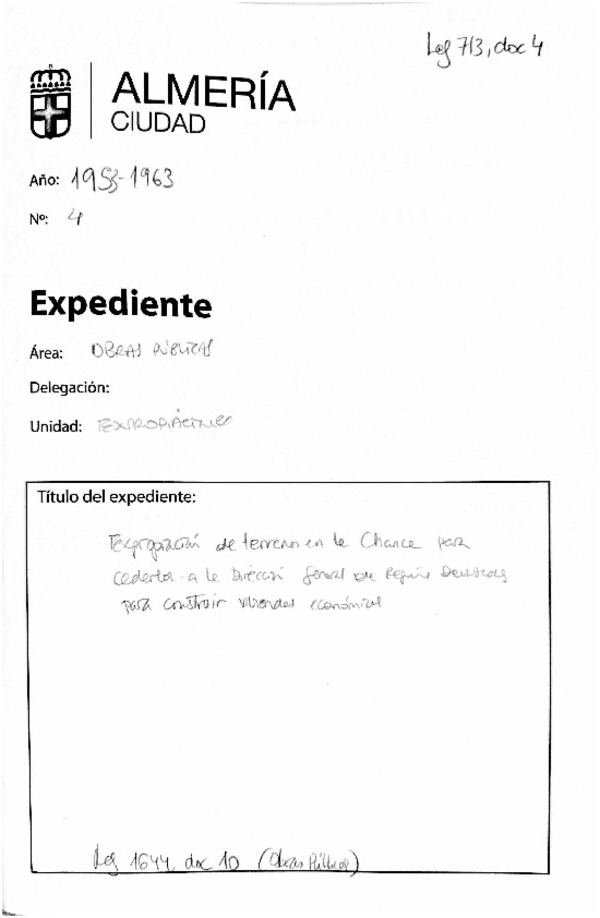 Leg 713, doc 4
ALMERÍA
CIUDAD
Año: 1958-1963
Nº: 4
Expediente
Área: OBRAS PÚBLICAS
Delegación:
Unidad: EXPROPIACIONES
Título del expediente:
Expropiación de terreno en la Chanca para
cederlos a la Dirección General de Regiones Devastadas
para construir viviendas económicas
Leg 1644, doc 10 (Obras Públicas)